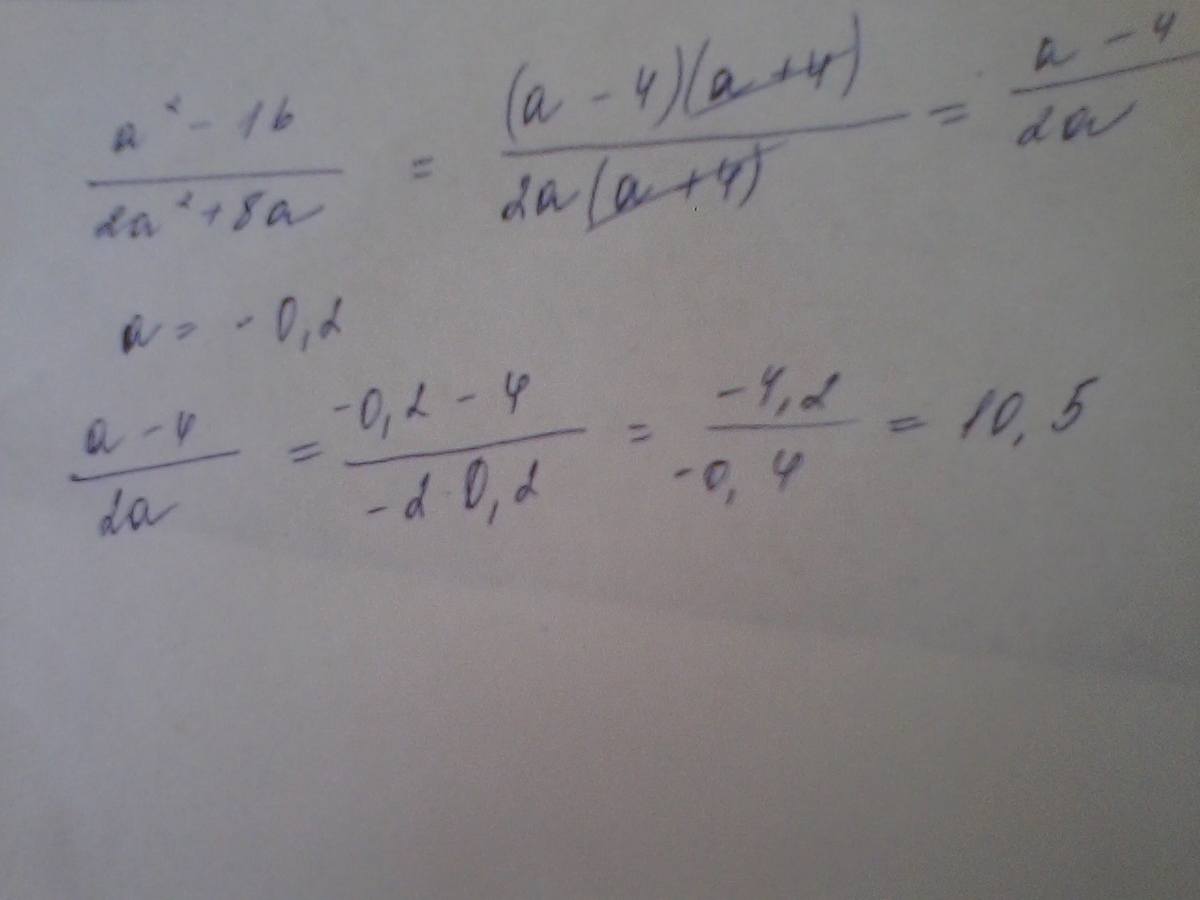 a² - 16 / 2a² + 8a = (a - 4)(a + 4) / 2a(a + 4) = a - 4 / 2a
a = - 0,2
a - 4 / 2a = -0,2 - 4 / -2·0,2 = -4,2 / -0,4 = 10,5